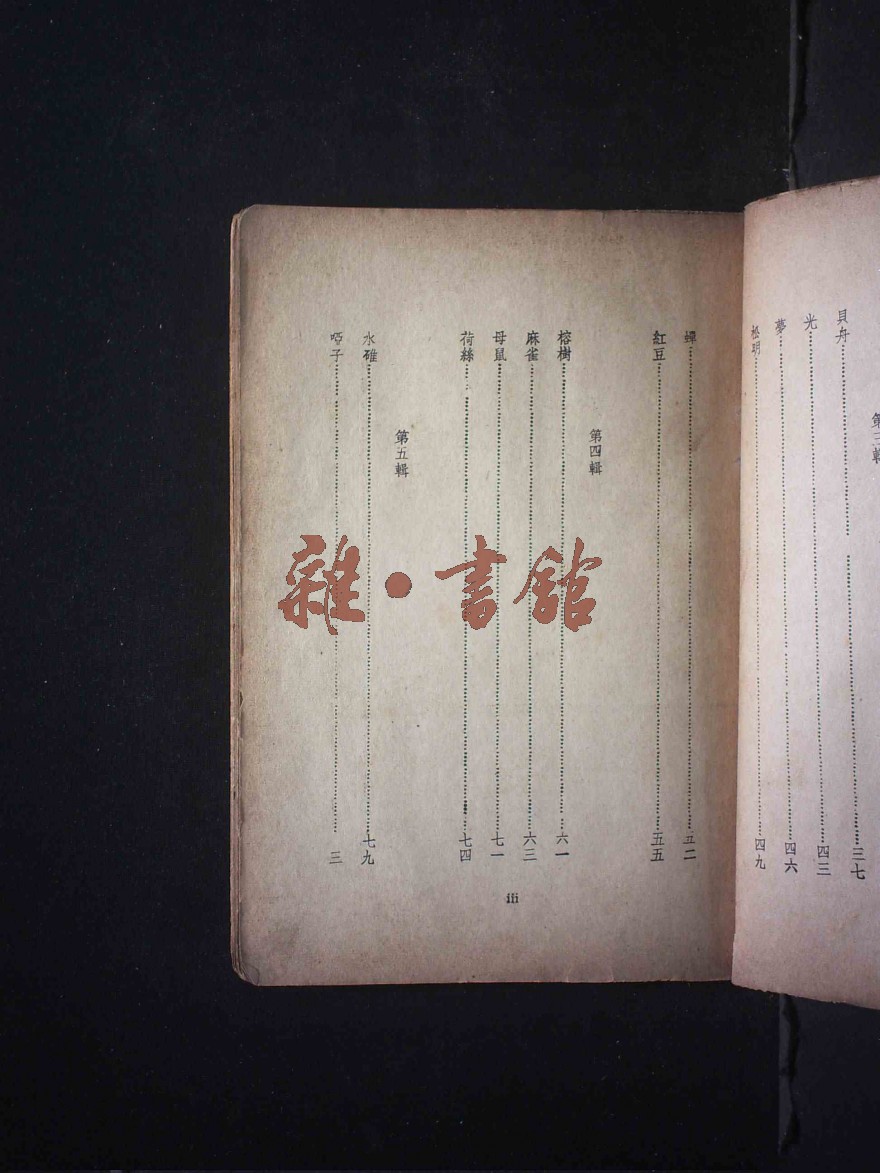 第三輯
貝舟 三七
光 四三
夢 四六
松明 四九
蟬 五二
紅豆 五五
第四輯
榕樹 六一
麻雀 六三
母鼠 七一
荷絲 七四
第五輯
水碓 七九
啞子 三
iii
雜·書館